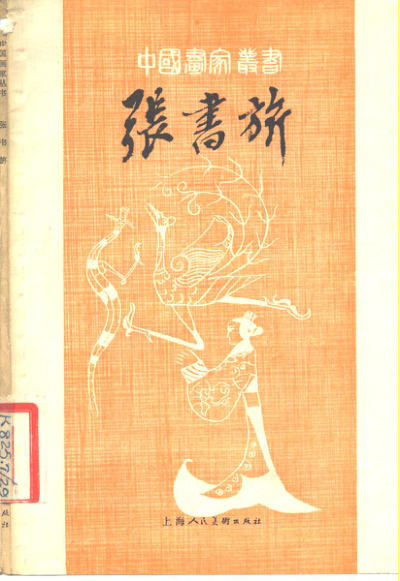 中國畫家叢書
張書旂
上海人民美術出版社
中国画家丛书
张书旂
K825.7/29
版社